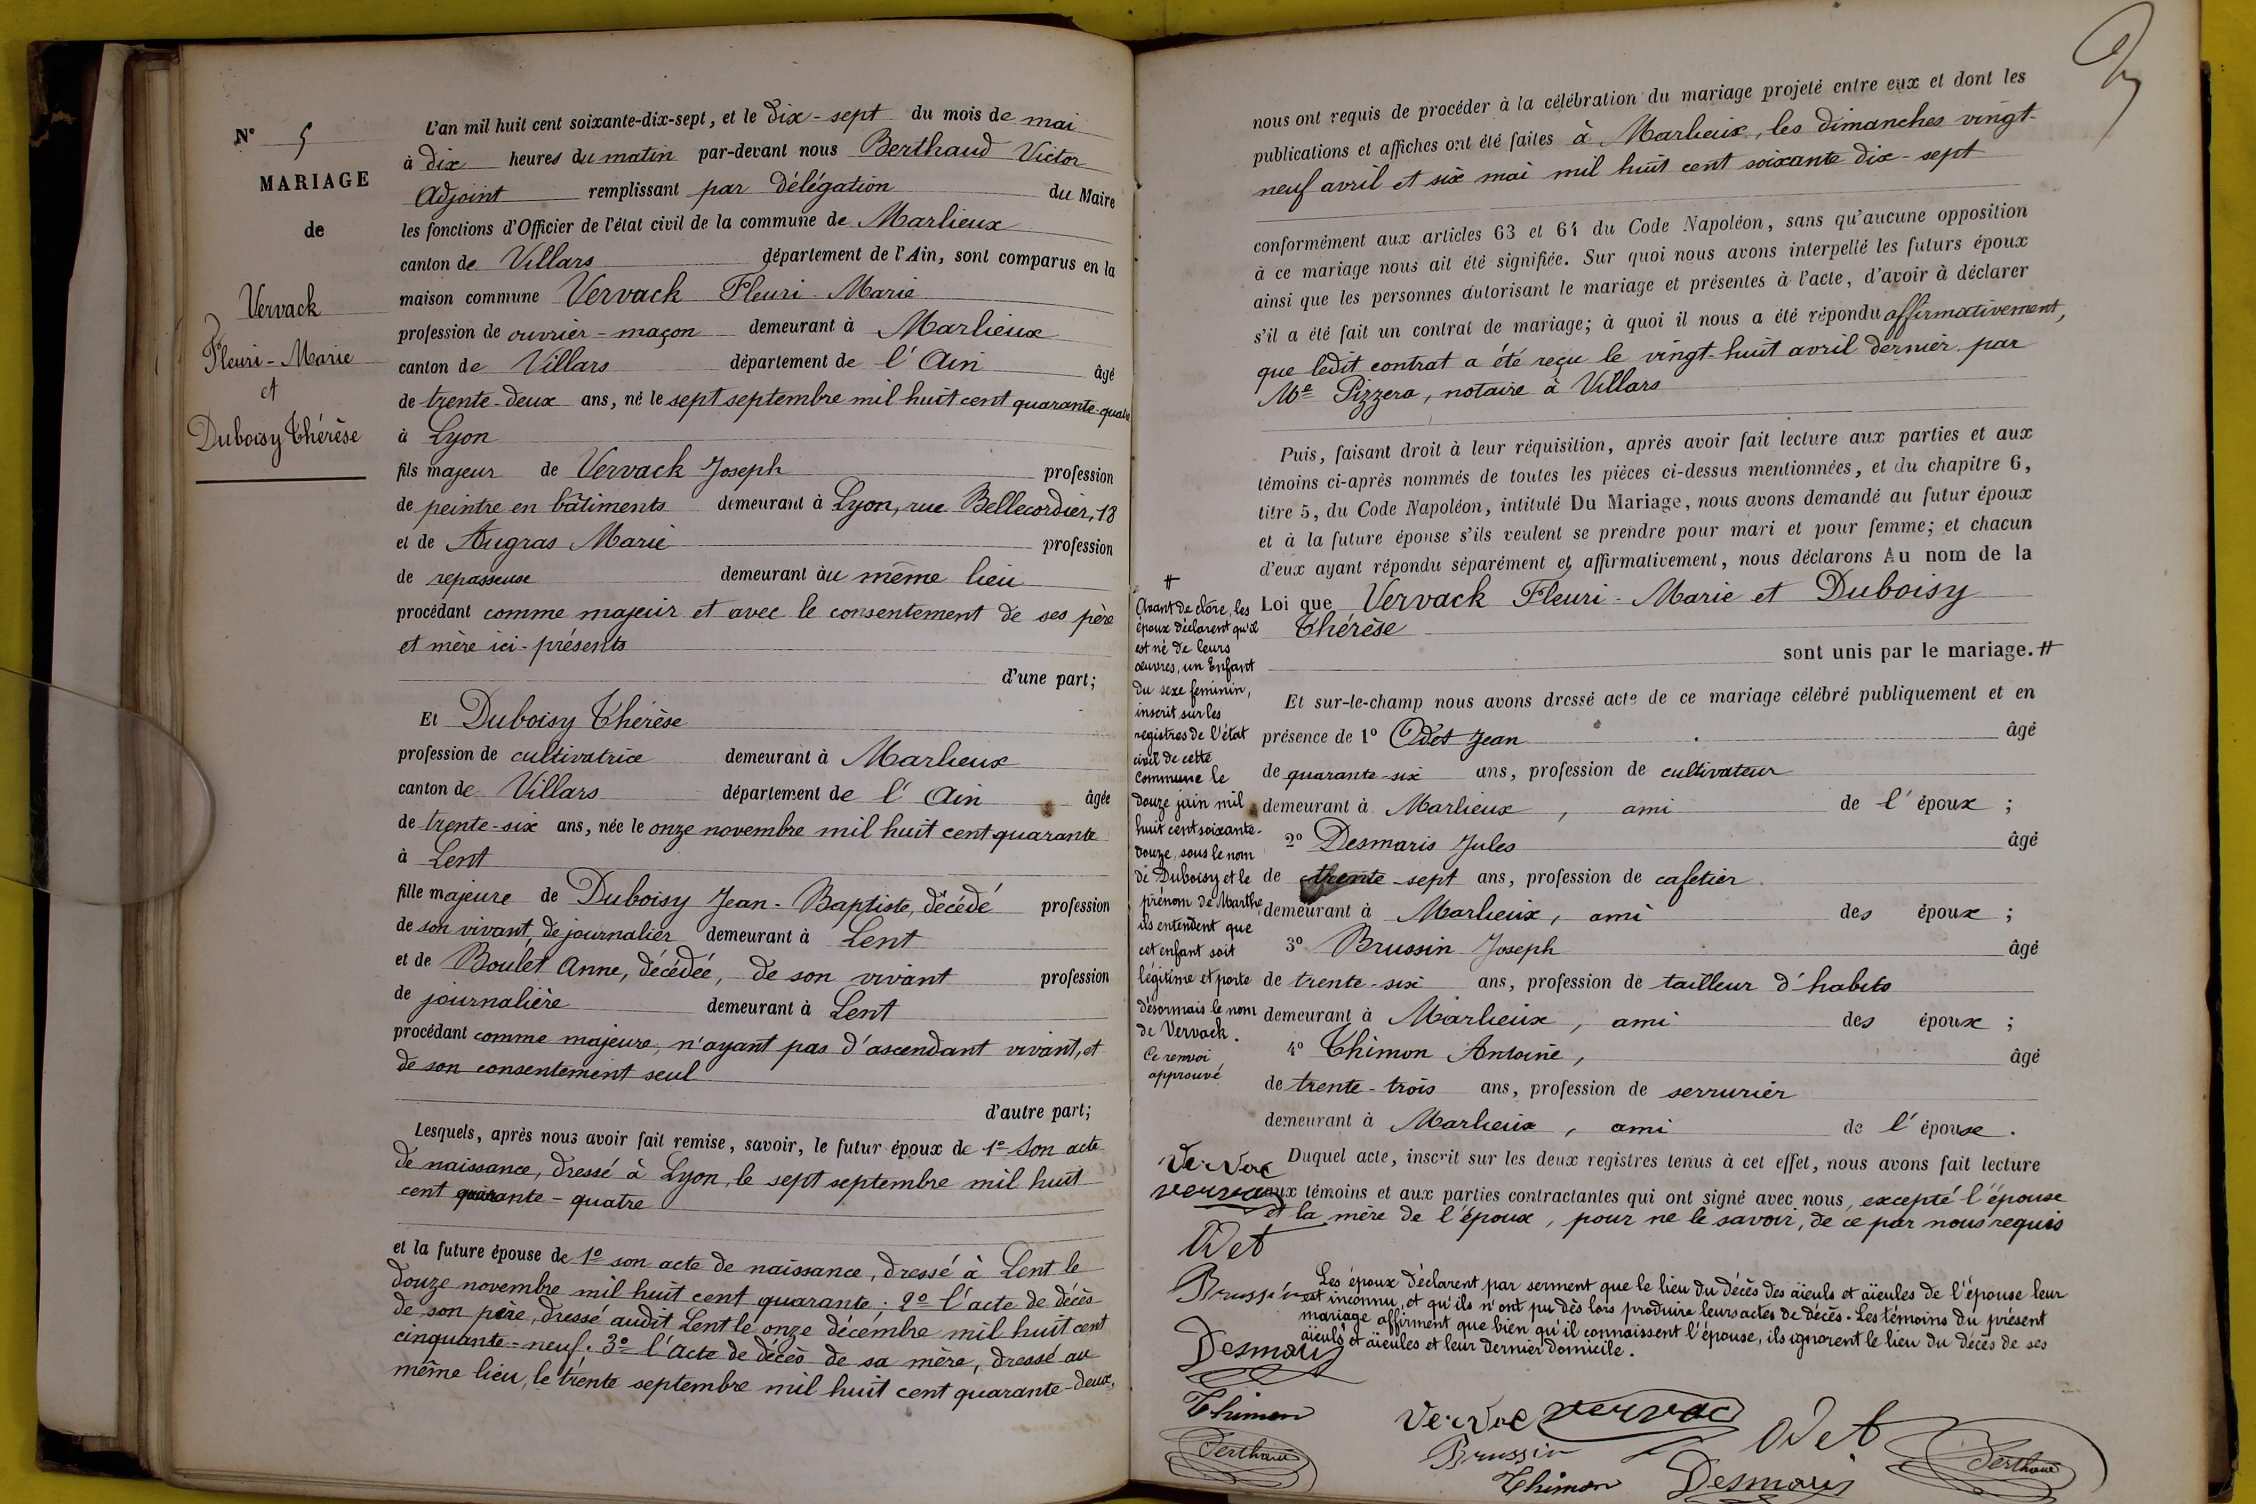 N° 5
MARIAGE
de
Vervack
Fleuri - Marie
et
Duboisy Thérèse
L'an mil huit cent soixante-dix-sept, et le dix-sept du mois de mai
à dix heures du matin par-devant nous Berthaud Victor
Adjoint remplissant par délégation du Maire
les fonctions d'Officier de l'état civil de la commune de Marlieux
canton de Villars département de l'Ain, sont comparus en la
maison commune Vervack Fleuri - Marie
profession de ouvrier - maçon demeurant à Marlieux
canton de Villars département de l'Ain âgé
de trente-deux ans, né le sept septembre mil huit cent quarante-quatre
à Lyon
fils majeur de Vervack Joseph profession
de peintre en bâtiments demeurant à Lyon, rue Bellecordier, 18
et de Augras Marie profession
de repasseuse demeurant au même lieu
procédant comme majeur et avec le consentement de ses père
et mère ici-présents
d'une part;
Et Duboisy Thérèse
profession de cultivatrice demeurant à Marlieux
canton de Villars département de l'Ain âgée
de trente-six ans, née le onze novembre mil huit cent quarante
à Lent
fille majeure de Duboisy Jean-Baptiste, décédé profession
de son vivant, de journalier demeurant à Lent
et de Boulet Anne, décédée, de son vivant profession
de journalière demeurant à Lent
procédant comme majeure, n'ayant pas d'ascendant vivant, et
de son consentement seul
d'autre part;
Lesquels, après nous avoir fait remise, savoir, le futur époux de 1° Son acte
de naissance, dressé à Lyon, le sept septembre mil huit
cent quarante-quatre
et la future épouse de 1° son acte de naissance, dressé à Lent le
douze novembre mil huit cent quarante; 2° l'acte de décès
de son père, dressé audit Lent le onze décembre mil huit cent
cinquante-neuf. 3° l'acte de décès de sa mère, dressé au
même lieu, le trente septembre mil huit cent quarante-deux,
nous ont requis de procéder à la célébration du mariage projeté entre eux et dont les
publications et affiches ont été faites à Marlieux, les dimanches vingt-
neuf avril et six mai mil huit cent soixante dix-sept
conformément aux articles 63 et 64 du Code Napoléon, sans qu'aucune opposition
à ce mariage nous ait été signifiée. Sur quoi nous avons interpellé les futurs époux
ainsi que les personnes autorisant le mariage et présentes à l'acte, d'avoir à déclarer
s'il a été fait un contrat de mariage; à quoi il nous a été répondu affirmativement,
que ledit contrat a été reçu le vingt-huit avril dernier par
Me Pizzera, notaire à Villars
Puis, faisant droit à leur réquisition, après avoir fait lecture aux parties et aux
témoins ci-après nommés de toutes les pièces ci-dessus mentionnées, et du chapitre 6,
titre 5, du Code Napoléon, intitulé Du Mariage, nous avons demandé au futur époux
et à la future épouse s'ils veulent se prendre pour mari et pour femme; et chacun
d'eux ayant répondu séparément et affirmativement, nous déclarons Au nom de la
Loi que Vervack Fleuri - Marie et Duboisy
Thérèse
sont unis par le mariage. #
Et sur-le-champ nous avons dressé acte de ce mariage célébré publiquement et en
présence de 1° Odet Jean âgé
de quarante-six ans, profession de cultivateur
demeurant à Marlieux, ami de l'époux ;
2° Desmaris Jules âgé
de trente-sept ans, profession de cafetier
demeurant à Marlieux, ami des époux ;
3° Brussin Joseph âgé
de trente-six ans, profession de tailleur d'habits
demeurant à Marlieux, ami des époux ;
4° Thimon Antoine, âgé
de trente-trois ans, profession de serrurier
demeurant à Marlieux, ami de l'épouse.
#
Avant de clore, les
époux déclarent qu'il
est né de leurs
œuvres, un Enfant
du sexe feminin,
inscrit sur les
registres de l'état
civil de cette
Commune le
douze juin mil
huit cent soixante-
douze, sous le nom
de Duboisy et le
prénom de Marthe,
ils entendent que
cet enfant soit
légitime et porte
désormais le nom
de Vervack.
Ce renvoi
approuvé
Duquel acte, inscrit sur les deux registres tenus à cet effet, nous avons fait lecture
aux témoins et aux parties contractantes qui ont signé avec nous, excepté l'épouse
et la mère de l'époux, pour ne le savoir, de ce par nous requis
Les époux déclarent par serment que le lieu du décès des aïeuls et aïeules de l'épouse leur
est inconnu, et qu'ils n'ont pu dès lors produire leurs actes de décès. Les témoins du présent
mariage affirment que bien qu'il connaissent l'épouse, ils ignorent le lieu du décès de ses
aïeuls et aïeules et leur dernier domicile.
Vervac
vervac
Odet
Brussin
Desmaris
Thimon
Berthaud
Vervac vervac Odet
Brussin Berthaud
Thimon Desmaris